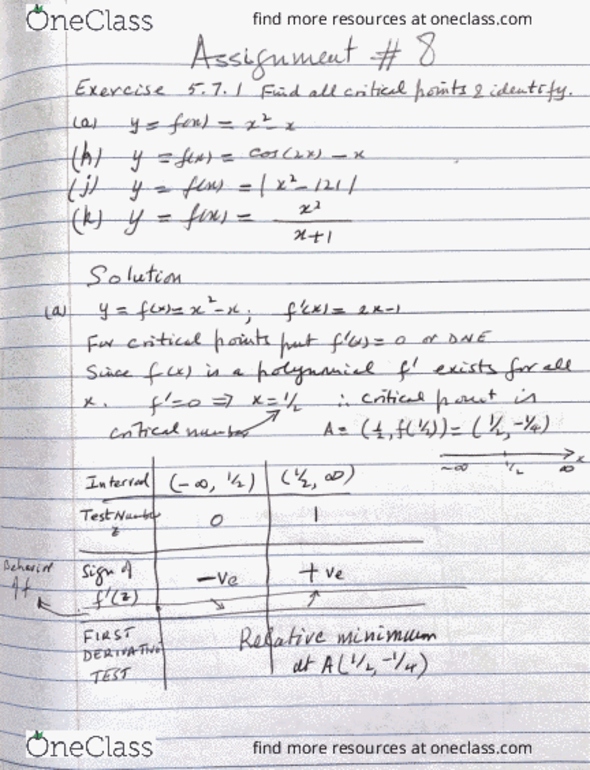 OneClass find more resources at oneclass.com
Assignment # 8
Exercise 5.7.1 Find all critical points & identify.
(a) y = f(x) = x² - x
(h) y = f(x) = cos(2x) - x
(j) y = f(x) = | x² - 121 |
(k) y = f(x) = x²
x+1
Solution
(a) y = f(x) = x² - x ; f'(x) = 2x - 1
For critical points put f'(x) = 0 or DNE
Since f(x) is a polynomial f' exists for all
x. f' = 0 ⇒ x = 1/2 ∴ critical point is
critical number A = (1/2, f(1/2)) = (1/2, -1/4)
-∞ 1/2 ∞ x
Interval (-∞, 1/2) (1/2, ∞)
Test Number
z 0 1
Behavior
of f
Sign of
f'(z) -ve +ve
FIRST
DERIVATIVE
TEST
Relative minimum
at A(1/2, -1/4)
OneClass find more resources at oneclass.com